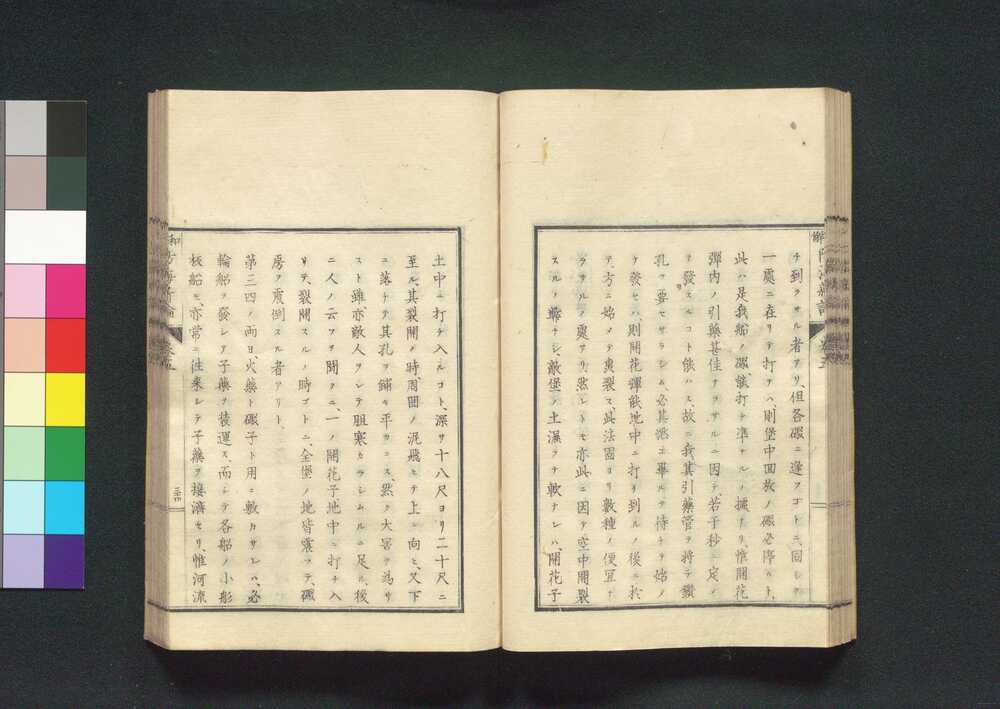 チ到ラサル者アリ、但各礟ニ逢フゴトニ、回シテ
一處ニ在リテ打テハ則堡中回放ノ礟必停ルト、
此ハ是我船ノ礟儀打チ準ナルノ據ナリ、惟開花
彈内ノ引藥甚佳ナラサルニ因テ、若干秒ニ定メ
テ發スルコト能ハス、故ニ我其引藥管ヲ將テ鑽
孔ヲ要セサラシム、必其挑土畢ルヲ待チテ始メ
テ發セハ、則開花彈敵地中ニ打チ到ルノ後ニ於
テ、方ニ始メテ裏裂ス此法固ヨリ數種ノ便宜ナ
ラサルノ處アリ、然レトモ亦此ニ因テ空中開裂
スルノ弊ナシ、敵堡ノ土濕ヲテ軟ナレハ、開花子
土中ニ打チ入ルコト、深サ十八尺ヨリ二十尺ニ
至ル、其裂開ノ時、周囲ノ泥飛ヒテ上ニ向ヒ、又下
ニ落チテ其孔ヲ鋪キ平カニス、然ク大害ヲ為サ
スト雖、亦敵人ヲシテ胆寒カラシムルニ足ル、後
二人ノ云フヲ聞クニ、一ノ開花子、地中ニ打チ入
リテ、裂開スルノ時ゴトニ、全堡ノ地皆震ツテ、礟
房ヲ震倒スル者アリト、
第三四ノ両日、火藥ト礟子ト用ニ敷カサレハ、必
輪船ヲ發シテ子藥ヲ裝運ス、而シテ各船ノ小彫
板船モ、亦常ニ往來シテ子藥ヲ接濟セリ、惟河流
三十四